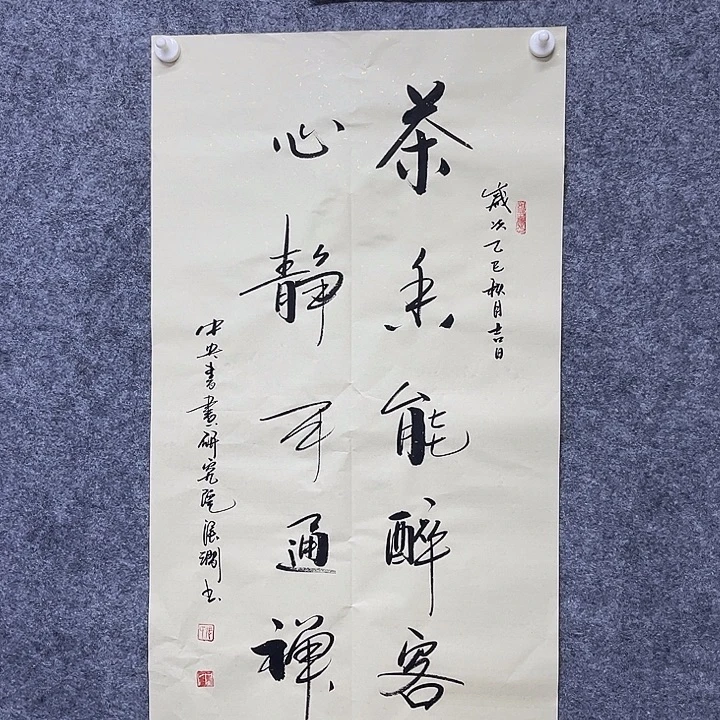 岁次乙巳秋月吉日
茶香能醉客
心静可通禅
中央书画研究院